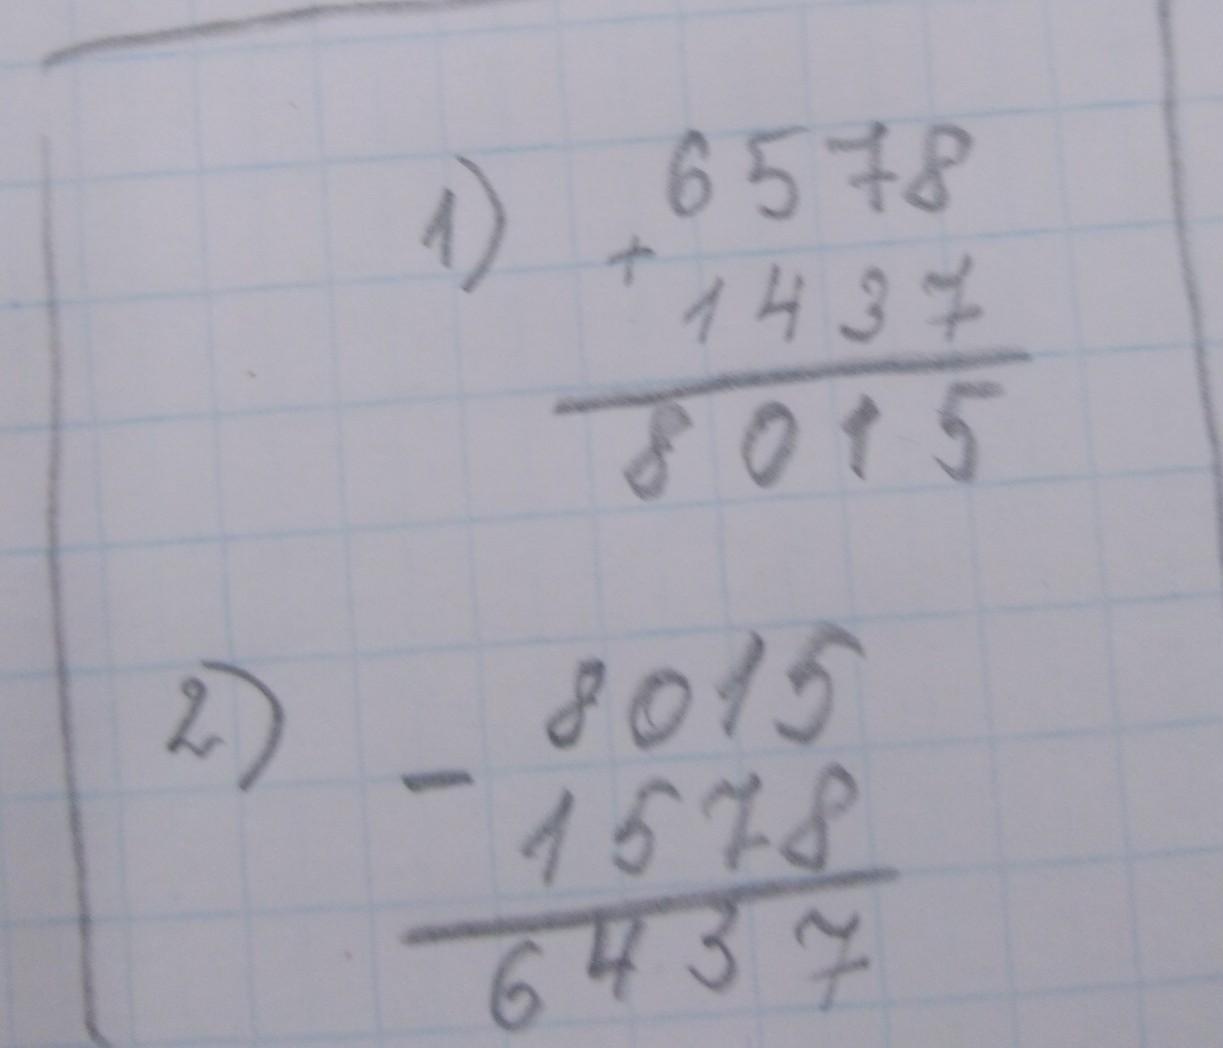 1) 6578
+
1437
8015
2) 8015
-
1578
6437